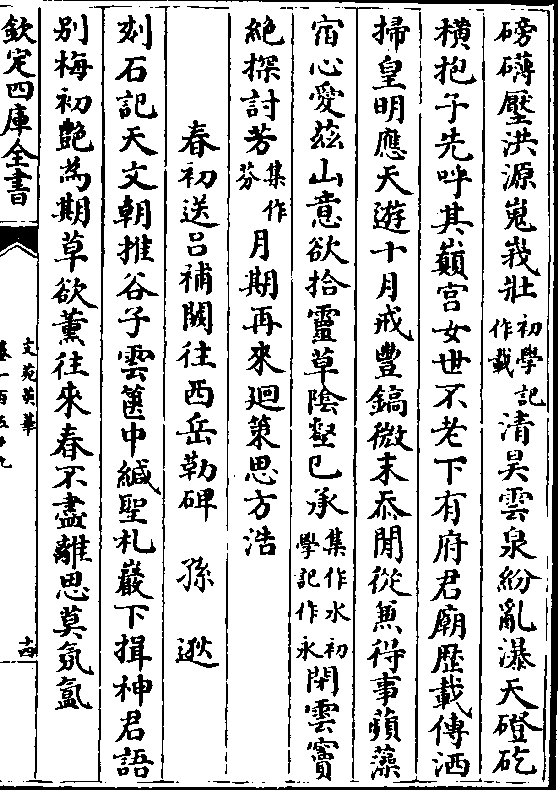 磅礴壓洪源嵬峩壯初學記作載清昊雲泉紛亂瀑天磴矻
橫抱子先呼其巔宫女世不老下有府君廟歴載傳洒
掃皇明應天遊十月戒豐鎬微末忝閒從兼得事蘋藻
宿心愛兹山意欲拾靈草陰壑已承集作氷初學記作永閉雲竇
絶探討芳集作芬月期再來迴策思方浩
春初送吕補闕往西岳勒碑 孫逖
刻石記天文朝推谷子雲篋中緘聖札巖下揖神君語
别梅初艷為期草欲薫往來春不盡離思莫氛氲
欽定四庫全書
文苑英華
卷一百五十九
十四